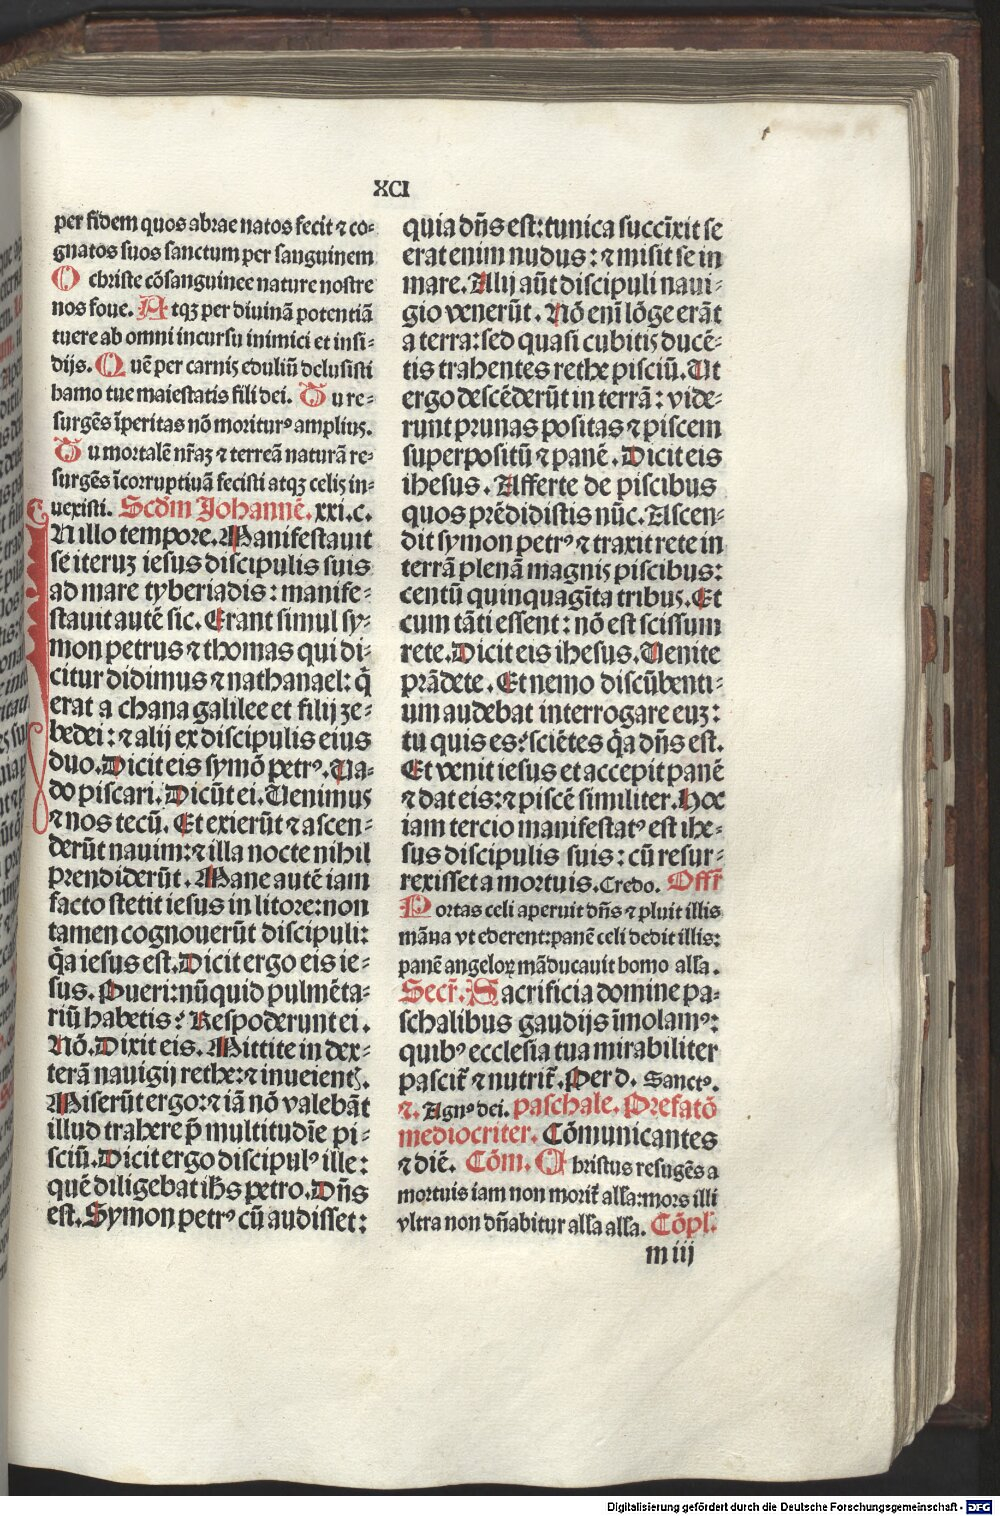 XCI
per fidem quos abrae natos fecit ⁊ co⸗
gnatos suos sanctum per sanguinem
O christe cōsanguinee nature nostre
nos foue. Atqꝫ per diuinā potentiā
tuere ab omni incursu inimici et insi⸗
dijs. Quē per carnis eduliū delusisti
hamo tue maiestatis fili dei. Tu re⸗
surgēs īperitas nō moriturꝰ ampliꝰ.
Tu mortalē nr̄aꝫ ⁊ terreā naturā re⸗
surgēs īcorruptiuā fecisti atqꝫ celis in⸗
uexisti. Scdm̄ Johannē. xxi. c.
IN illo tempore. Manifestauit
se iteruꝫ iesus discipulis suis
ad mare tyberiadis: manife⸗
stauit autē sic. Erant simul sy⸗
mon petrus ⁊ thomas qui di⸗
citur didimus ⁊ nathanael: q̄
erat a chana galilee et filij ze⸗
bedei: ⁊ alij ex discipulis eius
duo. Dicit eis symō petrꝰ. Ua⸗
do piscari. Dicūt ei. Uenimus
⁊ nos tecū. Et exierūt ⁊ ascen⸗
derūt nauim: ⁊ illa nocte nihil
prendiderūt. Mane autē iam
facto stetit iesus in litore: non
tamen cognouerūt discipuli:
q̄a iesus est. Dicit ergo eis ie⸗
sus. Pueri: nūquid pulmēta⸗
riū habetis? Respoderunt ei.
Nō. Dixit eis. Mittite in dex⸗
terā nauigij rethe: ⁊ inueietꝭ.
Miserūt ergo: ⁊ iā nō valebāt
illud trahere p̄ multitudīe pi⸗
sciū. Dicit ergo discipulꝰ ille:
quē diligebat ih̄s petro. Dn̄s
est. Symon petrꝰ cū audisset:
quia dn̄s est: tunica succīxit se
erat enim nudus: ⁊ misit se in
mare. Alij aūt discipuli naui⸗
gio venerūt. Nō enī lōge erāt
a terra: sed quasi cubitis ducē⸗
tis trahentes rethe pisciū. Ut
ergo descēderūt in terrā: vide⸗
runt prunas positas ⁊ piscem
superpositū ⁊ panē. Dicit eis
ihesus. Afferte de piscibus
quos prēdidistis nūc. Ascen⸗
dit symon petrꝰ ⁊ traxit rete in
terrā plenā magnis piscibus:
centū quinquagīta tribus. Et
cum tāti essent: nō est scissum
rete. Dicit eis ihesus. Uenite
prādete. Et nemo discūbenti⸗
um audebat interrogare euꝫ:
tu quis es? sciētes q̄a dn̄s est.
Et venit iesus et accepit panē
⁊ dat eis: ⁊ piscē similiter. Hoc
iam tercio manifestatꝰ est ihe⸗
sus discipulis suis: cū resur⸗
rexisset a mortuis. Credo. Offr̄
Portas celi aperuit dn̄s ⁊ pluit illis
māna vt ederent: panē celi dedit illis:
panē angeloꝝ māducauit homo alla.
Secr̄. Sacrificia domine pa⸗
schalibus gaudijs īmolamꝰ:
quibꝰ ecclesia tua mirabiliter
pascit̄ ⁊ nutrit̄. Per d. Sanctꝰ.
⁊. Agnꝰ dei. paschale. Prefatō
mediocriter. Cōmunicantes
⁊ diē. Cōm. Christus resugēs a
mortuis iam non morit̄ alla: mors illi
vltra non dn̄abitur alla alla. Cōpl̄.
m iij
Digitalisierung gefördert durch die Deutsche Forschungsgemeinschaft - DFG